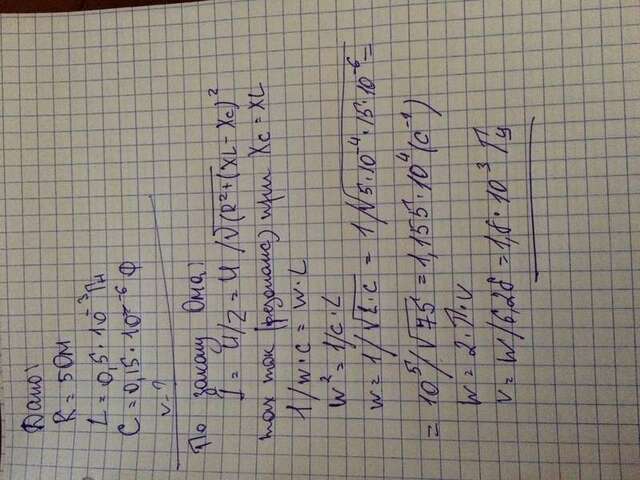 Дано:
R = 5 Ом
L = 0,5 · 10⁻³ Гн
C = 0,15 · 10⁻⁶ Ф
v - ?
По закону Ома:
I = U/Z = U /√(R²+(XL - Xc)²
max ток (резонанс) при Xc = XL
1/w·c = w·L
w² = 1/c·L
w = 1/√L·c = 1/√5·10⁻⁴·15·10⁻⁶ =
= 10⁵/√75 = 1,155·10⁴ (c⁻¹)
w = 2·П·v
v = w/6,28 = 1,8·10³ Гц